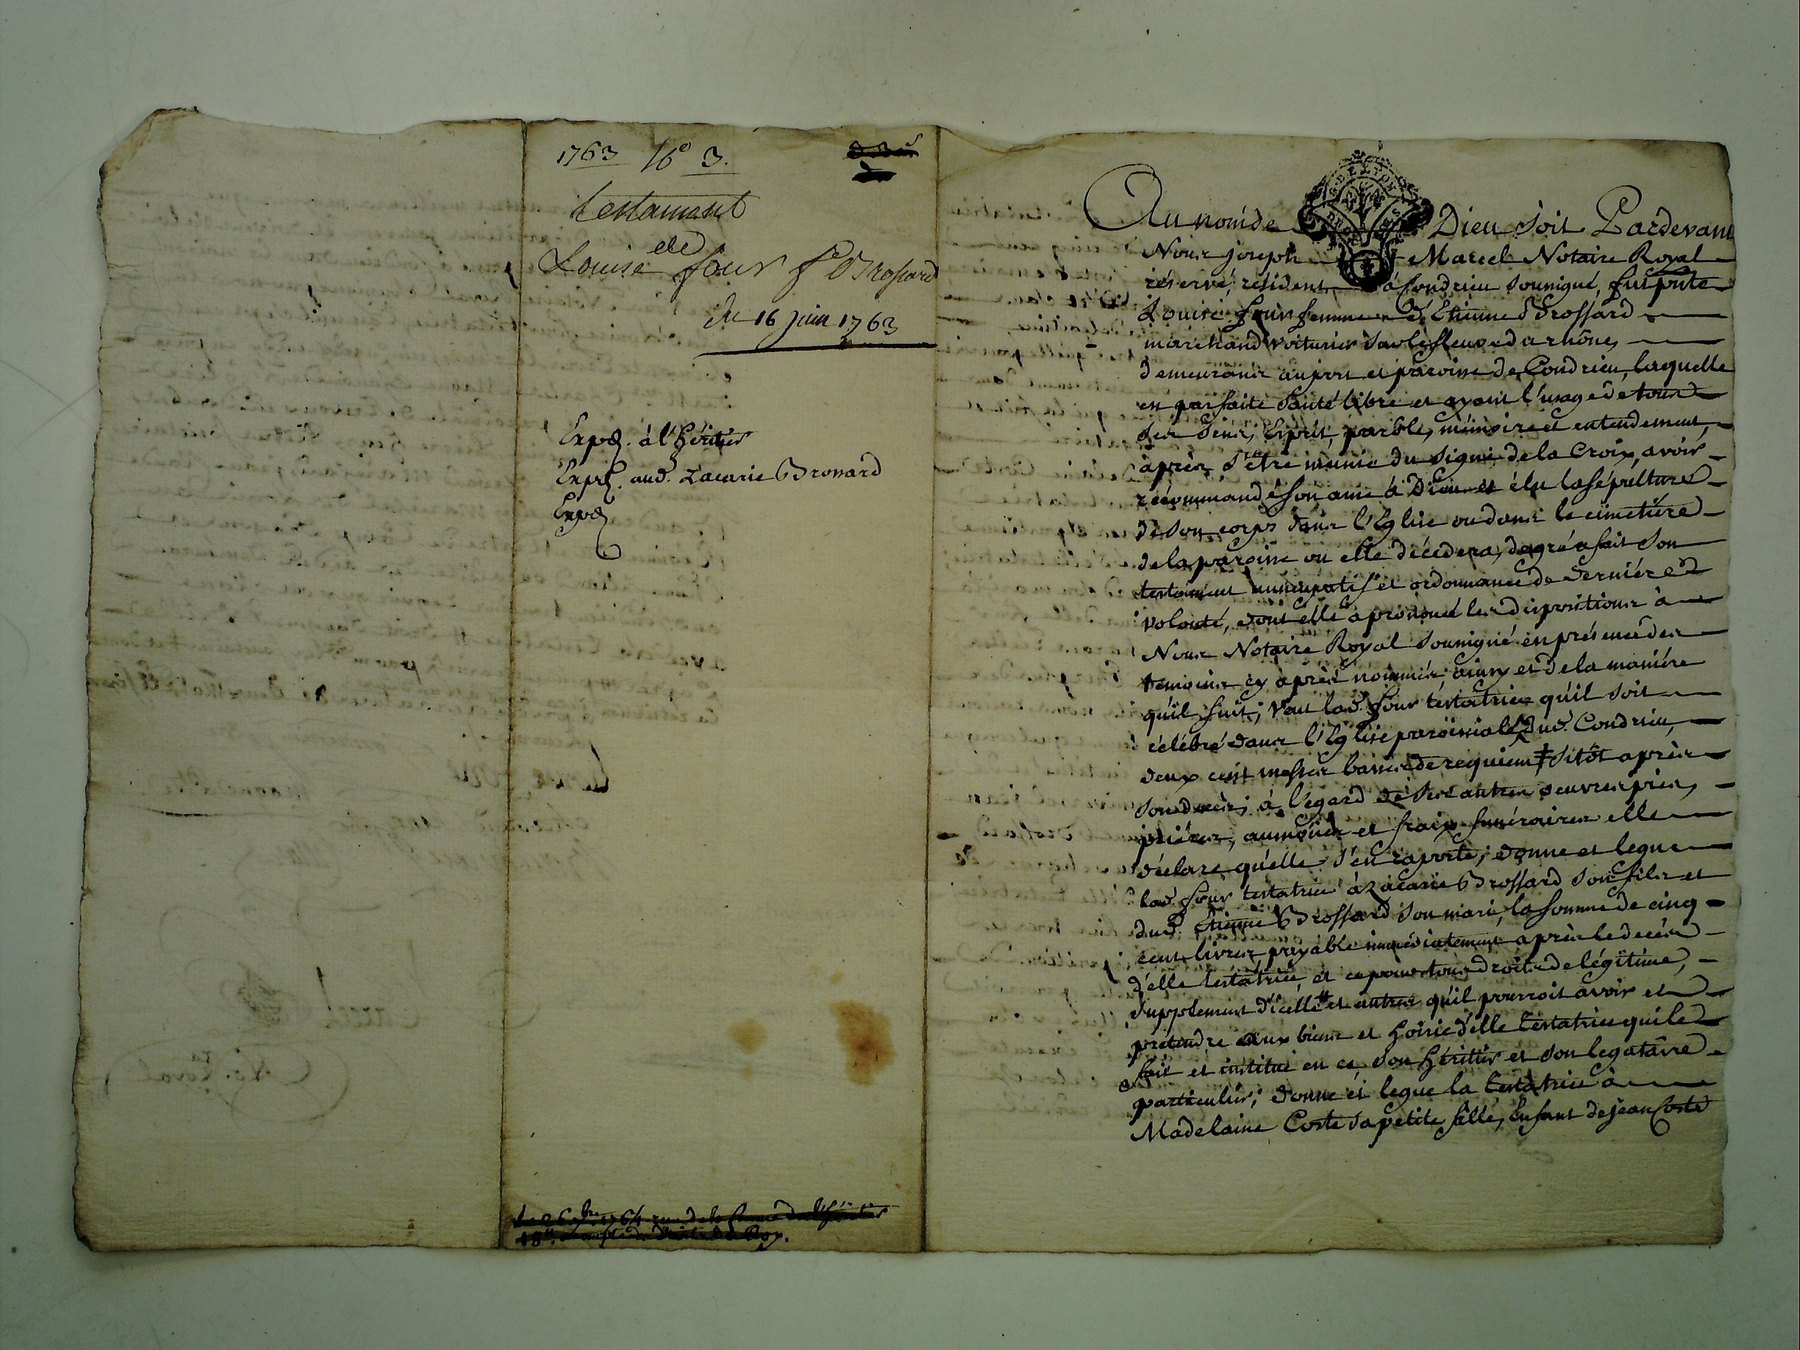 1763 No 3.
testament
de
Louise four fe Brossard
du 16 juin 1763
Expd. à l'héritier
Expd. aud. Zacarie Brossard
Expd
Au nom de Dieu soit Pardevant
Nous joseph Marcel Notaire Royal
réservé, résident à Condrieu soussigné, fut pnte
Louise four femme d'Etienne Brossard
marchand voiturier sur le fleuve du rhône,
demeurante au port et paroisse de Condrieu, laquelle
en parfaite santé libre et ayant l'usage de tous
ses sens, Esprit, parole, mémoire et entendement,
après s'être munie du signe de la Croix, avoir
récommandé son ame à Dieu et élu la sépulture
de son corps dans l'Eglise ou dans le cimetière
de la paroisse ou elle décédera, de gré a fait son
testament nuncupatif et ordonnance de derniére
volonté, dont elle à prononcé les dispositions à
Nous Notaire Royal soussigné en présence des
temoins cy après nommés, ainsy et de la maniére
qu'il suit; Veut lad. four testatrice qu'il soit
célébré dans l'Eglise paroissiale dud. Condrieu,
deux cent messes basses de requiem sitôt après
son decès; à l'égard de ses autres oeuvres pies,
priéres, aumônes et fraix funéraires elle
déclare qu'elle s'en raporte; donne et legue
lad. four testatrice à Zacarie Brossard son fils et
dud. Etienne Brossard son mari, la somme de cinq
cent livres payable immédiatement après le decés
d'elle testatrice, et ce pour tous droits de légitime,
supplement d'icelle et autres qu'il pourroit avoir et
prétendre aux biens et hoirie d'elle testatrice qui le
fait et institue en ce, son héritier et son legataire
particulier; donne et legue la testatrice à
Madelaine Coste sa petite fille, Enfant de jean Coste